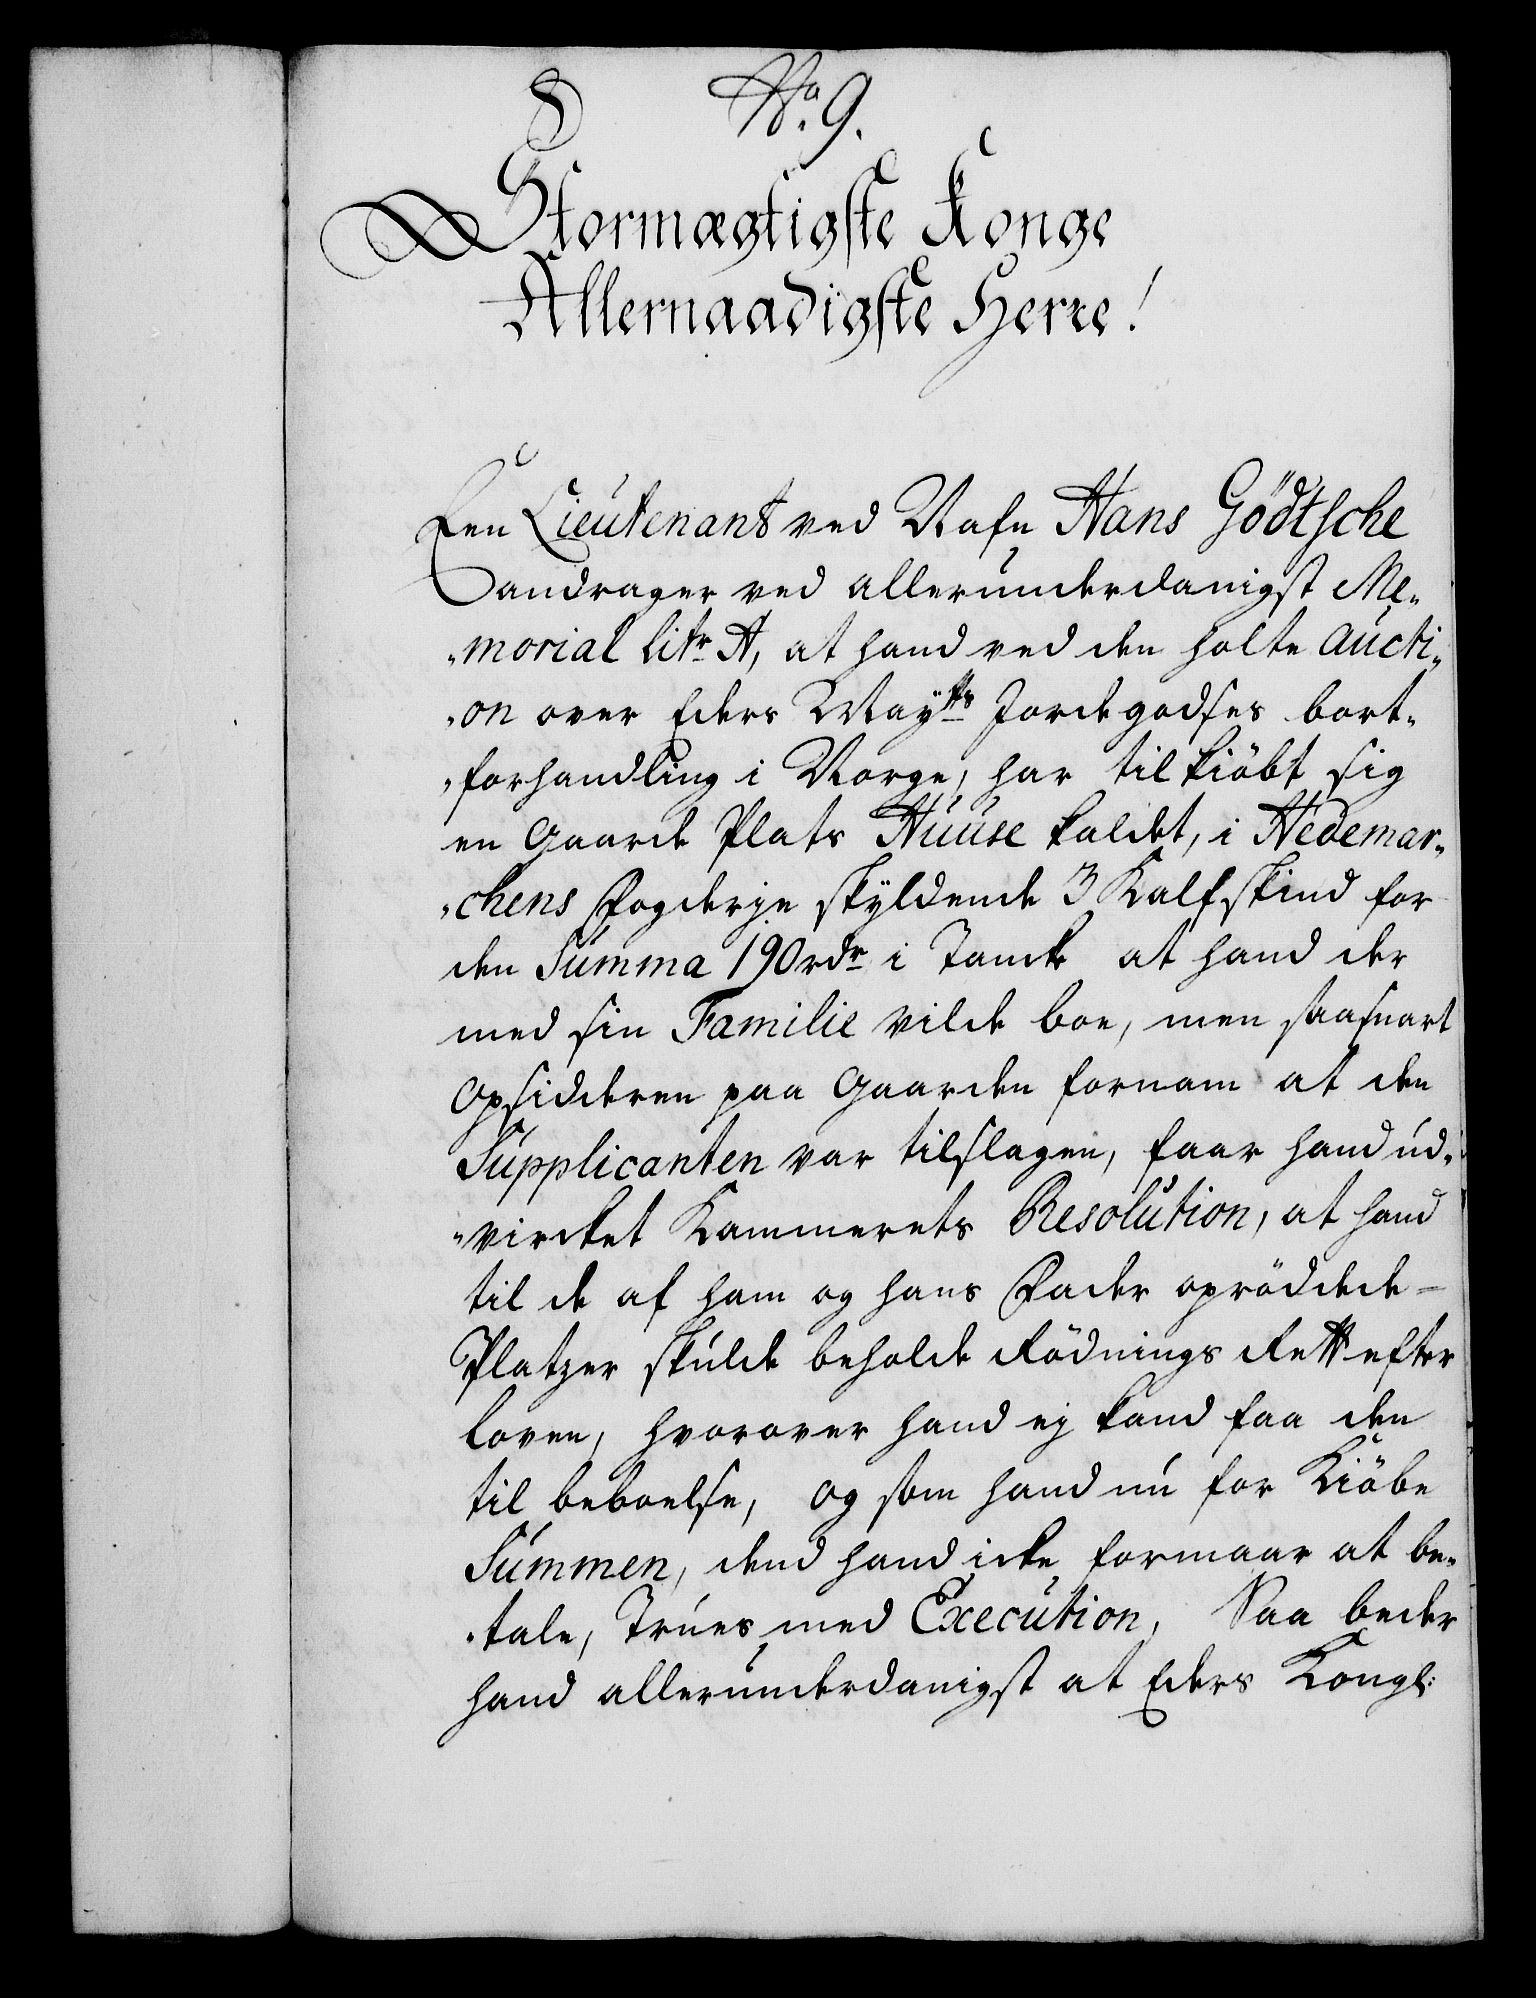 No. 9.
Stormægtigste Konge
Allernaadigste Herre!
Een Lieutenant ved Nafn Hans Gödtsche
andrager ved allerunderdanigst Me-
-morial litr A, at hand ved den holte Aucti-
-on over Eders Mayts Jordegodses bort-
-forhandling i Norge, har tilkiöbt sig
en Gaarde Plats Huuse kaldet, i Hedemar-
-chens Fogderje skyldende 3 Kalfskind for
den Summa 190 rdr i Tancke at hand der
med sin Familie vilde boe, men saasnart
Opsidderen paa Gaarden fornam at den
Supplicanten var tilslagen, faar hand ud-
-vircket Kammerets Resolution, at hand
til de af ham og hans Fader opröddede
Platzer skulde beholde Rödnings Rett efter
loven, hvorover hand ej kand faa den
til beboelse, og som hand nu for Kiöbe
Summen, dend hand icke formaar at be-
-tale, Trues med Execution, Saa beder
hand allerunderdanigst at Eders Kongl: